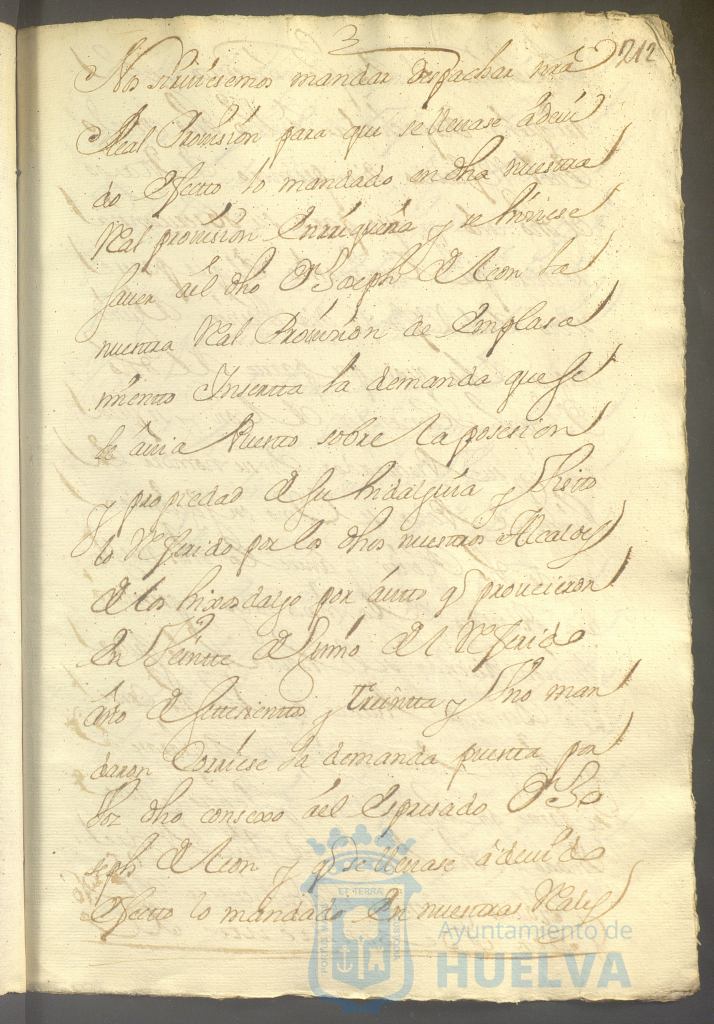 3
212
Nos sirviesemos mandar despachar nrâ
Real Provision para que se llevase â devi
do efectto lo mandado en dha nuestra
Real provision Enrriqueña y se hiciese
saver âel dho Dn Joseph de Leon la
nuestra Real Provision de Emplasa
miento Insertta la demanda que se
le avia Puesto sobre la posesion
y propiedad de su hidalguia y Visto
lo Referido por los dhos nuestros Alcaldes
de los hixosdalgo por autto q proveieron
en Veintte de Junio del Referido
año de settesientos y treintta y Vno man
daron Corriese la demanda puesta por
Por dho consexo âel Espresado Dn Jo
seph de Leon y q se llevase â devido
efectto lo mandado en nuestras Reales
ET TERRAE
Ayuntamiento de
HUELVA